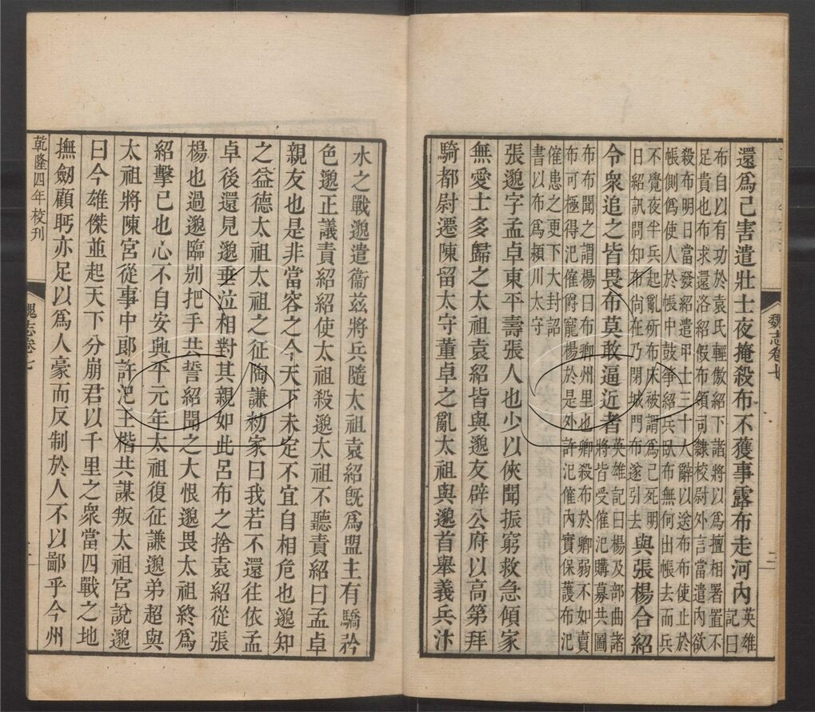 魏志卷七 二
還爲己害遣壯士夜掩殺布不獲事露布走河內英雄
記曰
布自以有功於袁氏輕傲紹下諸將以爲擅相署置不
足貴也布求還洛紹假布領司隸校尉外言當遣內欲
殺布明日當發紹遣甲士三十人辭以送布布使止於
帳側僞使人於帳中鼓箏紹兵臥布無何出帳去而兵
不覺夜半兵起亂斫布牀被謂爲已死明
日紹訊問知布尚在乃閉城門布遂引去
與張楊合紹
令衆追之皆畏布莫敢逼近者
英雄記曰楊及部曲諸
將皆受傕汜購募共圖
布布聞之謂楊曰布卿州里也卿殺布於卿弱不如賣
布可極得汜傕爵寵楊於是外許汜傕內實保護布汜
傕患之更下大封詔
書以布爲潁川太守
張邈字孟卓東平壽張人也少以俠聞振窮救急傾家
無愛士多歸之太祖袁紹皆與邈友辟公府以高第拜
騎都尉遷陳留太守董卓之亂太祖與邈首舉義兵汴
水之戰邈遣衞茲將兵隨太祖袁紹旣爲盟主有驕矜
色邈正議責紹紹使太祖殺邈太祖不聽責紹曰孟卓
親友也是非當容之今天下未定不宜自相危也邈知
之益德太祖太祖之征陶謙勑家曰我若不還往依孟
卓後還見邈垂泣相對其親如此呂布之捨袁紹從張
楊也過邈臨別把手共誓紹聞之大恨邈畏太祖終爲
紹擊己也心不自安興平元年太祖復征謙邈弟超與
太祖將陳宮從事中郎許汜王楷共謀叛太祖宮說邈
曰今雄傑並起天下分崩君以千里之衆當四戰之地
撫劒顧眄亦足以爲人豪而反制於人不以鄙乎今州
乾隆四年校刊
魏志卷七